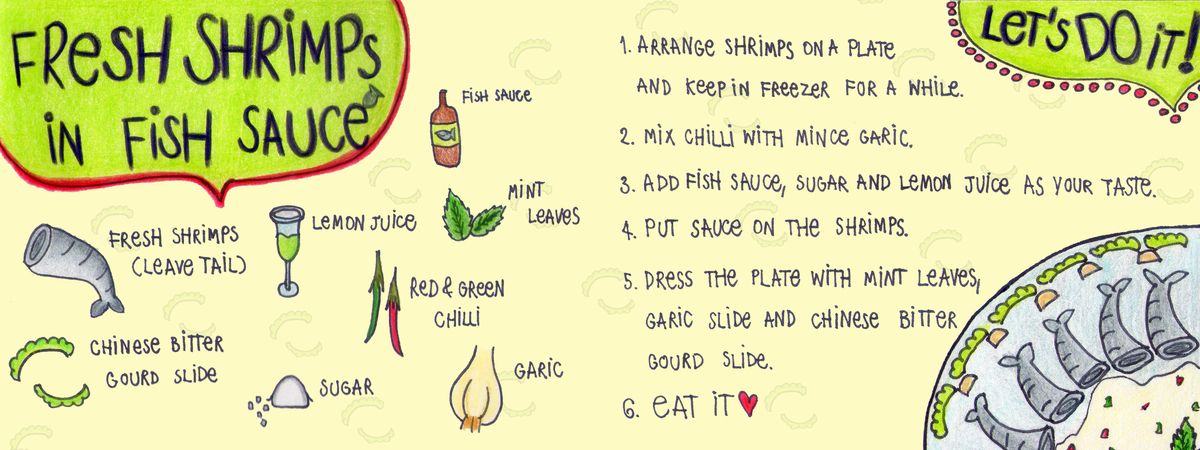 FRESH SHRIMPS
IN FISH SAUCE
FISH SAUCE
MINT
LEAVES
LEMON JUICE
FRESH SHRIMPS
(LEAVE TAIL)
RED & GREEN
CHILLI
CHINESE BITTER
GOURD SLIDE
SUGAR
GARIC
LET'S DO IT!
1. ARRANGE SHRIMPS ON A PLATE
AND KEEP IN FREEZER FOR A WHILE.
2. MIX CHILLI WITH MINCE GARIC.
3. ADD FISH SAUCE, SUGAR AND LEMON JUICE AS YOUR TASTE.
4. PUT SAUCE ON THE SHRIMPS.
5. DRESS THE PLATE WITH MINT LEAVES,
GARIC SLIDE AND CHINESE BITTER
GOURD SLIDE.
6. EAT IT